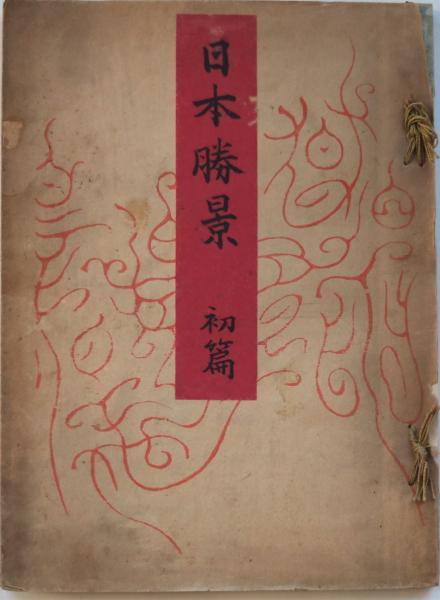 日本勝景 初篇